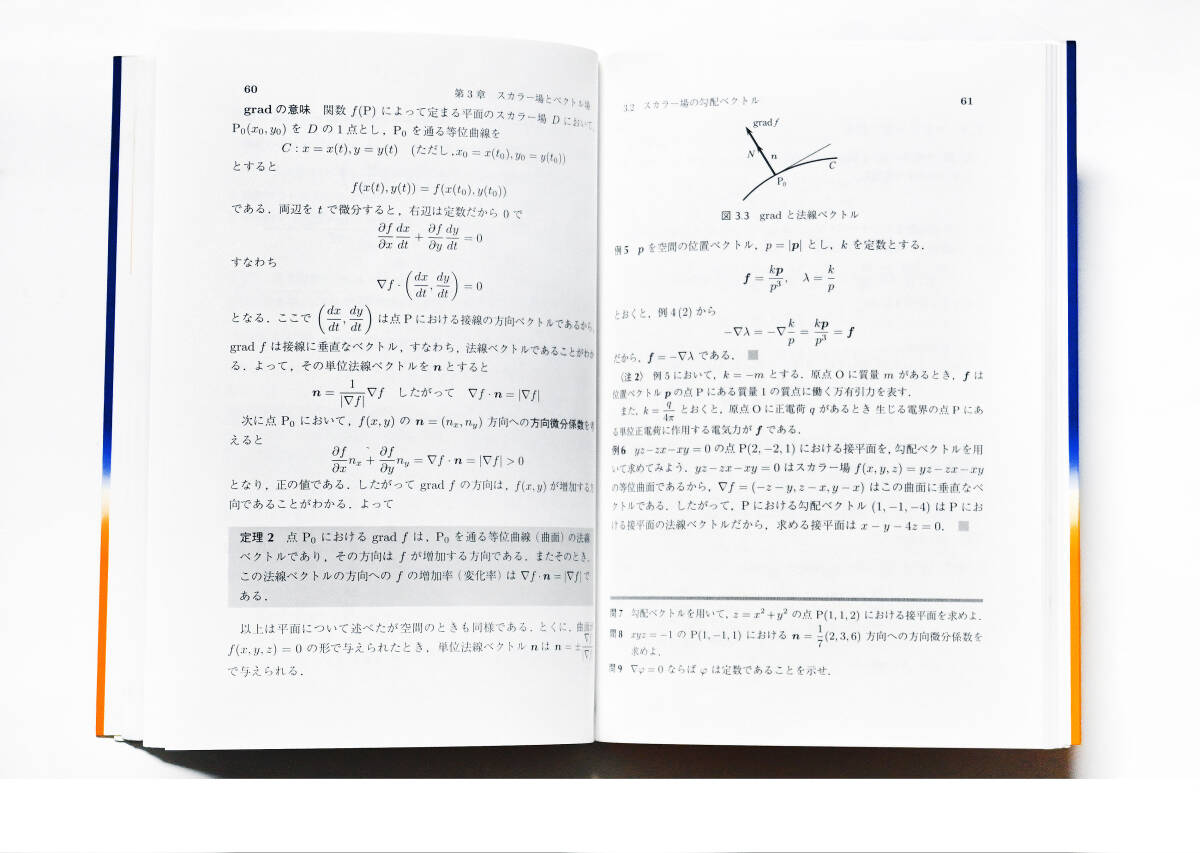 60
第3章 スカラー場とベクトル場
grad の意味 関数 f(P) によって定まる平面のスカラー場 D において,
P₀(x₀, y₀) を D の1点とし, P₀ を通る等位曲線を
C : x = x(t), y = y(t) (ただし, x₀ = x(t₀), y₀ = y(t₀))
とすると
f(x(t), y(t)) = f(x(t₀), y(t₀))
である. 両辺を t で微分すると, 右辺は定数だから 0 で
∂f/∂x dx/dt + ∂f/∂y dy/dt = 0
すなわち
∇f · (dx/dt, dy/dt) = 0
となる. ここで (dx/dt, dy/dt) は点 P における接線の方向ベクトルであるから,
grad f は接線に垂直なベクトル, すなわち, 法線ベクトルであることがわか
る. よって, その単位法線ベクトルを n とすると
n = 1/|∇f| ∇f したがって ∇f · n = |∇f|
次に点 P₀ において, f(x, y) の n = (nₓ, n_y) 方向への方向微分係数を考
えると
∂f/∂x nₓ + ∂f/∂y n_y = ∇f · n = |∇f| > 0
となり, 正の値である. したがって grad f の方向は, f(x, y) が増加する方
向であることがわかる. よって
定理 2 点 P₀ における grad f は, P₀ を通る等位曲線 (曲面) の法線
ベクトルであり, その方向は f が増加する方向である. またそのとき,
この法線ベクトルの方向への f の増加率 (変化率) は ∇f · n = |∇f| で
ある.
以上は平面について述べたが空間のときも同様である. とくに, 曲面が
f(x, y, z) = 0 の形で与えられたとき, 単位法線ベクトル n は n = ±∇f/|∇f|
で与えられる.
3.2 スカラー場の勾配ベクトル
61
grad f
N
n
C
P₀
図 3.3 grad と法線ベクトル
例 5 p を空間の位置ベクトル, p = |p| とし, k を定数とする.
f = kp/p³, λ = k/p
とおくと, 例 4 (2) から
−∇λ = −∇ k/p = kp/p³ = f
だから, f = −∇λ である. ■
〈注 2〉 例 5 において, k = −m とする. 原点 O に質量 m があるとき, f は
位置ベクトル p の点 P にある質量 1 の質点に働く万有引力を表す.
また, k = q/4π とおくと, 原点 O に正電荷 q があるとき 生じる電界の点 P にあ
る単位正電荷に作用する電気力が f である.
例 6 yz − zx − xy = 0 の点 P(2, −2, 1) における接平面を, 勾配ベクトルを用
いて求めてみよう. yz − zx − xy = 0 はスカラー場 f(x, y, z) = yz − zx − xy
の等位曲面であるから, ∇f = (−z − y, z − x, y − x) はこの曲面に垂直なベ
クトルである. したがって, P における勾配ベクトル (1, −1, −4) は P にお
ける接平面の法線ベクトルだから, 求める接平面は x − y − 4z = 0. ■
問 7 勾配ベクトルを用いて, z = x² + y² の点 P(1, 1, 2) における接平面を求めよ.
問 8 xyz = −1 の P(1, −1, 1) における n = 1/7 (2, 3, 6) 方向への方向微分係数を
求めよ.
問 9 ∇φ = 0 ならば φ は定数であることを示せ.